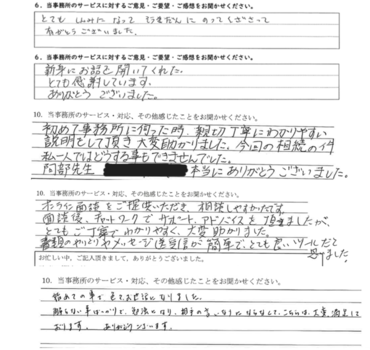 6．当事務所のサービスに対するご意見・ご要望・ご感想をお聞かせください。
とても 親身になって 行まだんに のってくださって
ありがとうございました。
6．当事務所のサービスに対するご意見・ご要望・ご感想をお聞かせください。
親身にお話を聞いてくれた。
とても感謝しています。
ありがとうございました。
10．当事務所のサービス・対応、その他感じたことをお聞かせください。
初めて事務所に伺った時、親切丁寧にわかりやすい
説明をして頂き大変助かりました。今回の相続の件
私一人ではどうする事もできませんでした。
阿部先生 本当にありがとうございました。
10．当事務所のサービス・対応、その他感じたことをお聞かせください。
オンライン面談をご提案いただき、相談しやすかったです。
面談後、チャットワークでサポート、アドバイスを頂きましたが、
とてもご丁寧でわかりやすく、大変助かりました。
書類のやりとりやメッセージ送受信が簡単で、とても良いツールだと
思いました。
お忙しい中、ご記入頂きまして、ありがとうございました。
10．当事務所のサービス・対応、その他感じたことをお聞かせください。
初めての事で お世話になりました。
解らない事ばかりで、お世話になり、
おります。 ありがとうございます。